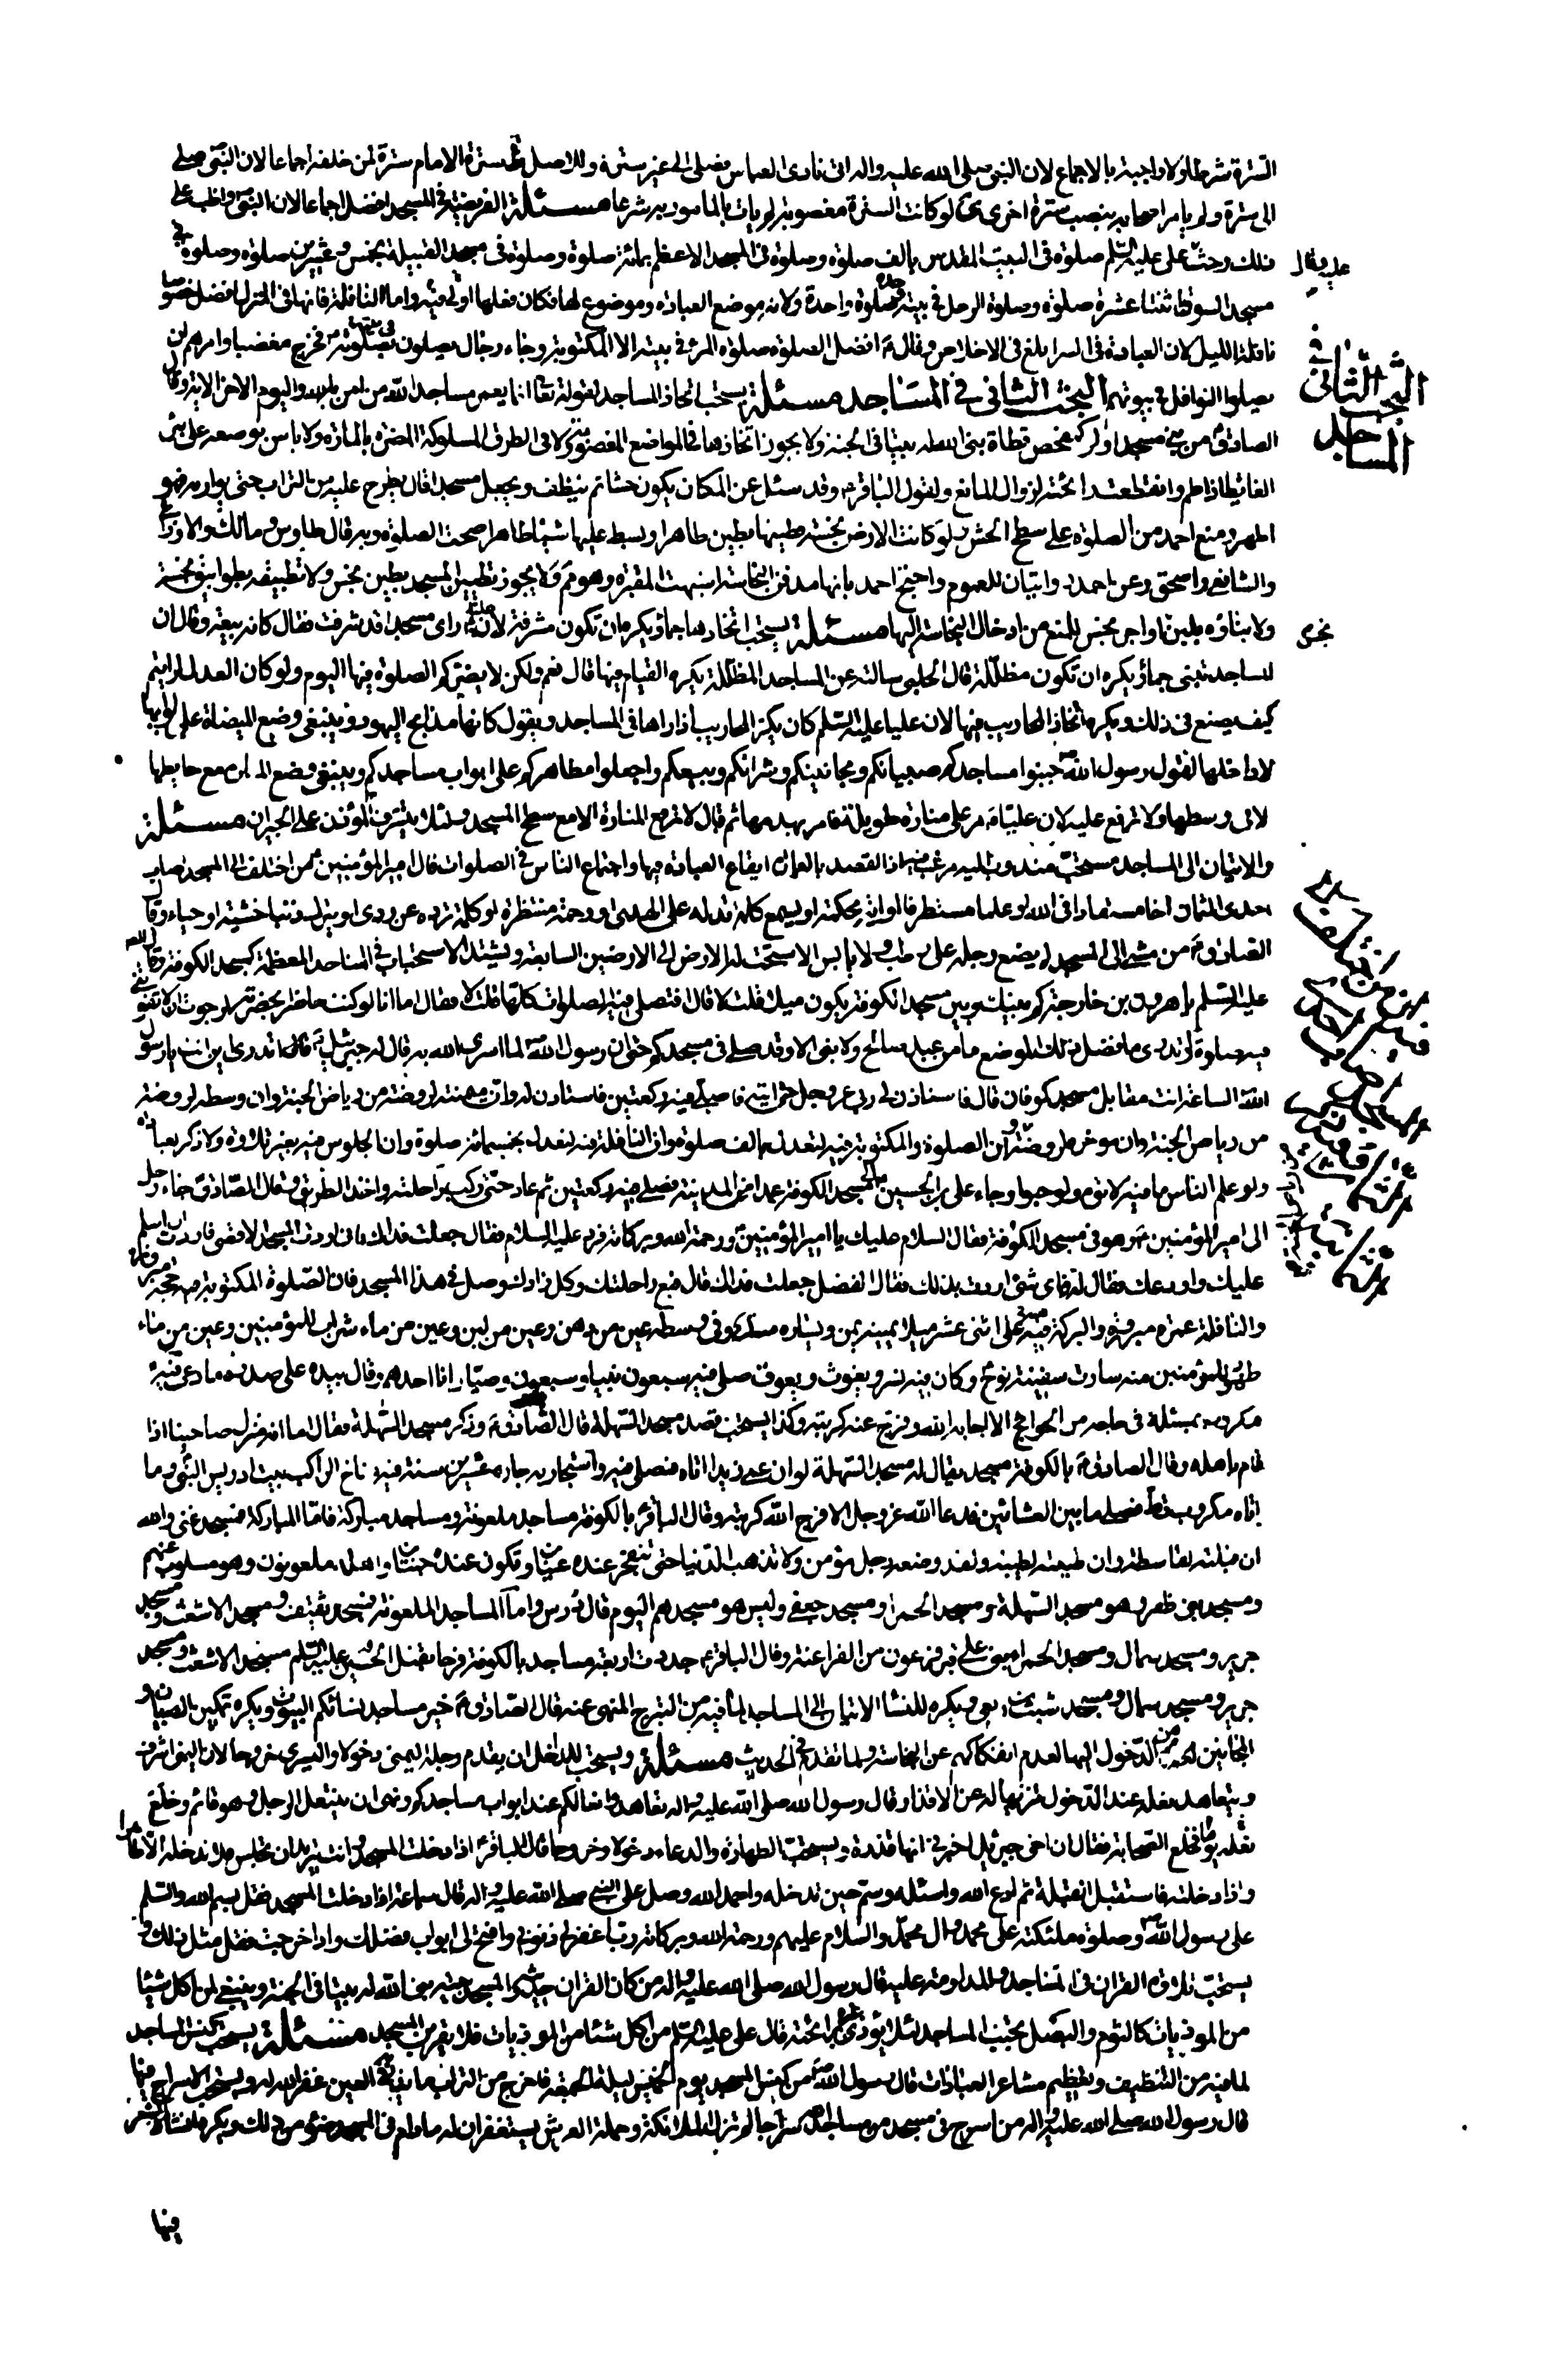 السترة شرطا ولا واجبة بالاجماع لان النبي صلى الله عليه واله اتى نادى العباس فصلى الى غير سترة
سترة الامام سترة لمن خلفه اجماعا لان النبي صلى
الى سترة ولم يامر اصحابه بنصب سترة اخرى لو كانت السترة مغصوبة لم يات بالمامور به شرعا مسئلة الفريضة في المسجد افضل اجماعا لان النبي واظب على
ذلك وحث على عليه السلم صلوة في البيت المقدس بالف صلوة وصلوة في المسجد الاعظم بمائة صلوة وصلوة في مسجد القبيلة بخمس وعشرين صلوة وصلوة في
مسجد السوق اثنتا عشرة صلوة وصلوة الرجل في بيته وحده صلوة واحدة ولانه موضع العبادة وموضوع لها فكان فعلها اولى فيه واما النافلة فانها في المنزل افضل خصوصا
نافلة الليل لان العبادة في السر ابلغ في الاخلاص وقال افضل الصلوة صلوة المرء في بيته الا المكتوبة وجاء رجال يصلون بصلوته فخرج مغضبا وامرهم ان
يصلوا النوافل في بيوتهم البحث الثاني في المساجد مسئلة يستحب اتخاذ المساجد لقوله تعا انما يعمر مساجد الله من امن بالله واليوم الاخر الاية وقال
الصادق من بنى مسجدا ولو كمفحص قطاة بنى الله له بيتا في الجنة ولا يجوز اتخاذها في المواضع المغصوبة ولا في الطرق المسلوكة المضرة بالمارة ولا باس بوضعه على بئر
الغائط اذا طم وانقطعت رائحته لزوال المانع ولقول الباقر وقد سئل عن المكان يكون حشا ثم ينظف ويجعل مسجدا قال يطرح عليه من التراب حتى يواريه فهو
اطهر ومنع احمد من الصلوة على سطح الحش ولو كانت الارض نجسة فطينها بطين طاهر او بسط عليها شيئا طاهرا صحت الصلوة وبه قال طاوس ومالك والاوزاعي
والشافعي واسحق وعن احمد روايتان للعموم واحتج احمد بانها مدفن النجاسة اشبهت المقبرة وهو مم ولا يجوز تطيين المسجد بطين نجس ولا تطبيقه بطوابيق نجسة
ولا بناؤه بلبن او اجر نجس للمنع من ادخال النجاسة اليها مسئلة يستحب اتخادها جما ويكره ان تكون مشرفة لان عليا راى مسجدا قد شرفت فقال كانه بيعة وقال ان
المساجد تبنى جما ويكره ان تكون مظللة قال الحلبي سالته عن المساجد المظللة يكره القيام فيها قال نعم ولكن لا يضركم الصلوة فيها اليوم ولو كان العدل لرايتم
كيف يصنع في ذلك ويكره اتخاذ المحاريب فيها لان عليا عليه السلم كان يكسر المحاريب اذا راها في المساجد ويقول كانها مذابح اليهود وينبغي وضع الميضاة على ابوابها
لا داخلها لقول رسول الله جنبوا مساجدكم صبيانكم ومجانينكم وشرائكم وبيعكم واجعلوا مطاهركم على ابواب مساجدكم وينبغي وضع المنارة مع حايطها
لا في وسطها ولا ترفع عليه لان عليا مر على منارة طويلة فامر بهدمها ثم قال لا ترفع المنارة الا مع سطح المسجد ولئلا يتشرف المؤذن على الجيران مسئلة
والاتيان الى المساجد مستحب مندوب اليه مرغب فيه اذ القصد بالعمارة ايقاع العبادة فيها واجتماع الناس في الصلوات قال امير المؤمنين من اختلف الى المسجد اصاب
احدى الثمان اخا مستفادا في الله او علما مستطرفا او اية محكمة او يسمع كلمة تدله على الهدى او رحمة منتظرة او كلمة ترده عن ردى او يترك ذنبا خشية او حياء وقال
الصادق من مشى الى المسجد لم يضع رجله على رطب ولا يابس الا سبحت له الارض الى الارضين السابعة ويشتد الاستحباب في المساجد المعظمة كمسجد الكوفة وقال
عليه السلم يا هرون بن خارجة كم بينك وبين مسجد الكوفة يكون ميلا قلت لا قال افتصلي فيه الصلوات كلها قلت لا فقال اما انا لو كنت حاضرا بحضرته لرجوت ان لا تفوتني
فيه صلوة او تدري ما فضل ذلك الموضع ما من عبد صالح ولا نبي الا وقد صلى في مسجدكم حتى ان رسول الله لما اسرى الله به قال له جبرئيل اتدري اين انت يا رسول
الله الساعة انت مقابل مسجد كوفان قال فاستاذن لي ربي عز وجل حتى اتيه فاصلي فيه ركعتين فاستاذن له وان ميمنته لروضة من رياض الجنة وان وسطه لروضة
من رياض الجنة وان موخره لروضة وان الصلوة المكتوبة فيه لتعدل بالف صلوة وان النافلة فيه لتعدل بخمسمائة صلوة وان الجلوس فيه بغير تلاوة ولا ذكر لعبادة
ولو علم الناس ما فيه لاتوه ولو حبوا وجاء على بن الحسين الى مسجد الكوفة عمدا من المدينة فصلى فيه ركعتين ثم عاد حتى ركب راحلته واخذ الطريق وقال الصادق جاء رجل
الى امير المؤمنين وهو في مسجد الكوفة فقال السلام عليك يا امير المؤمنين ورحمة الله وبركاته فرد عليه السلام فقال جعلت فداك اني اردت المسجد الاقصى فاردت ان اسلم
عليك واودعك فقال له فاي شئ اردت بذلك فقال الفضل جعلت فداك قال فبع راحلتك وكل زادك وصل في هذا المسجد فان الصلوة المكتوبة فيه حجة مبرورة
والنافلة عمرة مبرورة والبركة فيه على اثنى عشر ميلا يمينه يمن ويساره مكر وفي وسطه عين من دهن وعين من لبن وعين من ماء شراب للمؤمنين وعين من ماء
طهر للمؤمنين منه سارت سفينة نوح وكان فيه نسر ويغوث ويعوق صلى فيه سبعون نبيا وسبعون وصيا انا احدهم وقال بيده على صدره ما دعى فيه
مكروب بمسئلة في حاجة من الحوائج الا اجابه الله وفرج عنه كربته وكذا يستحب قصد مسجد السهلة قال الصادق وذكر مسجد السهلة فقال اما انه منزل صاحبنا اذا
قام باهله وقال الصادق بالكوفة مسجد يقال له مسجد السهلة لو ان عمى زيدا اتاه فصلى فيه واستجار به جاره عشرين سنة فيه مناخ الراكب بيت ادريس النبي وما
اتاه مكروب قط فصلى ما بين العشائين فدعا الله عز وجل الا فرج الله كربته وقال الباقر بالكوفة مساجد ملعونة ومساجد مباركة فاما المباركة فمسجد غنى والله
ان قبلته لقاسطة وان طينته لطيبة ولقد وضعه رجل مؤمن ولا تذهب الدنيا حتى تنفجر عنده عينان وتكون عنده جنتان واهله ملعونون وهو مسلوب عنهم
ومسجد بني ظفر وهو مسجد السهلة ومسجد الحمرا ومسجد جعفي وليس هو مسجدهم اليوم قال درس واما المساجد الملعونة فمسجد ثقيف ومسجد الاشعث ومسجد
جرير ومسجد سمال ومسجد الحمراء بني على قبر فرعون من الفراعنة وقال الباقر جددت اربعة مساجد بالكوفة فرحا بقتل الحسين عليه السلم مسجد الاشعث ومسجد
جرير ومسجد سمال ومسجد شبث بن ربعي ويكره للنسا الاتيان الى المساجد لما فيه من التبرج المنهى عنه قال الصادق خير مساجد نسائكم البيوت ويكره تمكين الصبيان و
المجانين من الدخول اليها لعدم انفكاكهم عن النجاسة ولما تقدم في الحديث مسئلة ويستحب للداخل ان يقدم رجله اليمنى دخولا واليسرى خروجا لان اليمنى اشرف
ويتعاهد نعله عند الدخول تنزيها له عن الاقذار وقال رسول الله صلى الله عليه واله تعاهدوا نعالكم عند ابواب مساجدكم ونهى ان ينتعل الرجل وهو قائم وخلع
نعله يوما فخلع الصحابة فقال ان اخى جبرئيل اخبرني انها قذرة ويستحب الطهارة والدعاء دخولا وخروجا قال الباقر اذا دخلت المسجد وانت تريد ان تجلس فلا تدخله الا طاهرا
واذا دخلته فاستقبل القبلة ثم ادع الله واسئله وسم حين تدخله واحمد الله وصل على النبي صلى الله عليه واله قال سماعة اذا دخلت المسجد فقل بسم الله والسلم
على رسول الله وصلوة ملئكته على محمد وال محمد والسلام عليهم ورحمة الله وبركاته رب اغفر لي ذنوبي وافتح لي ابواب فضلك واذا خرجت فقل مثل ذلك و
يستحب تلاوة القران في المساجد والمداومة عليه قال رسول الله صلى الله عليه واله من كان القران حديثه والمسجد بيته بنى الله له بيتا في الجنة وينبغي لمن اكل شيئا
من الموذيات كالثوم والبصل تجنب المساجد لئلا يؤذى غيره برائحته قال على عليه السلم من اكل شيئا من الموذيات فلا يقربن المسجد مسئلة يستحب كنس المساجد
لما فيه من التنظيف وتعظيم مشاعر العبادات قال رسول الله من كنس المسجد يوم الخميس ليلة الجمعة فاخرج من التراب ما يذر في العين غفر الله له ويستحب الاسراج فيها
قال رسول الله صلى الله عليه واله من اسرج في مسجد من مساجد الله سراجا لم تزل الملائكة وحملة العرش يستغفرون له ما دام في المسجد ضوء من ذلك ويكره انشاد الشعر
فيها
البحث الثاني في
المساجد